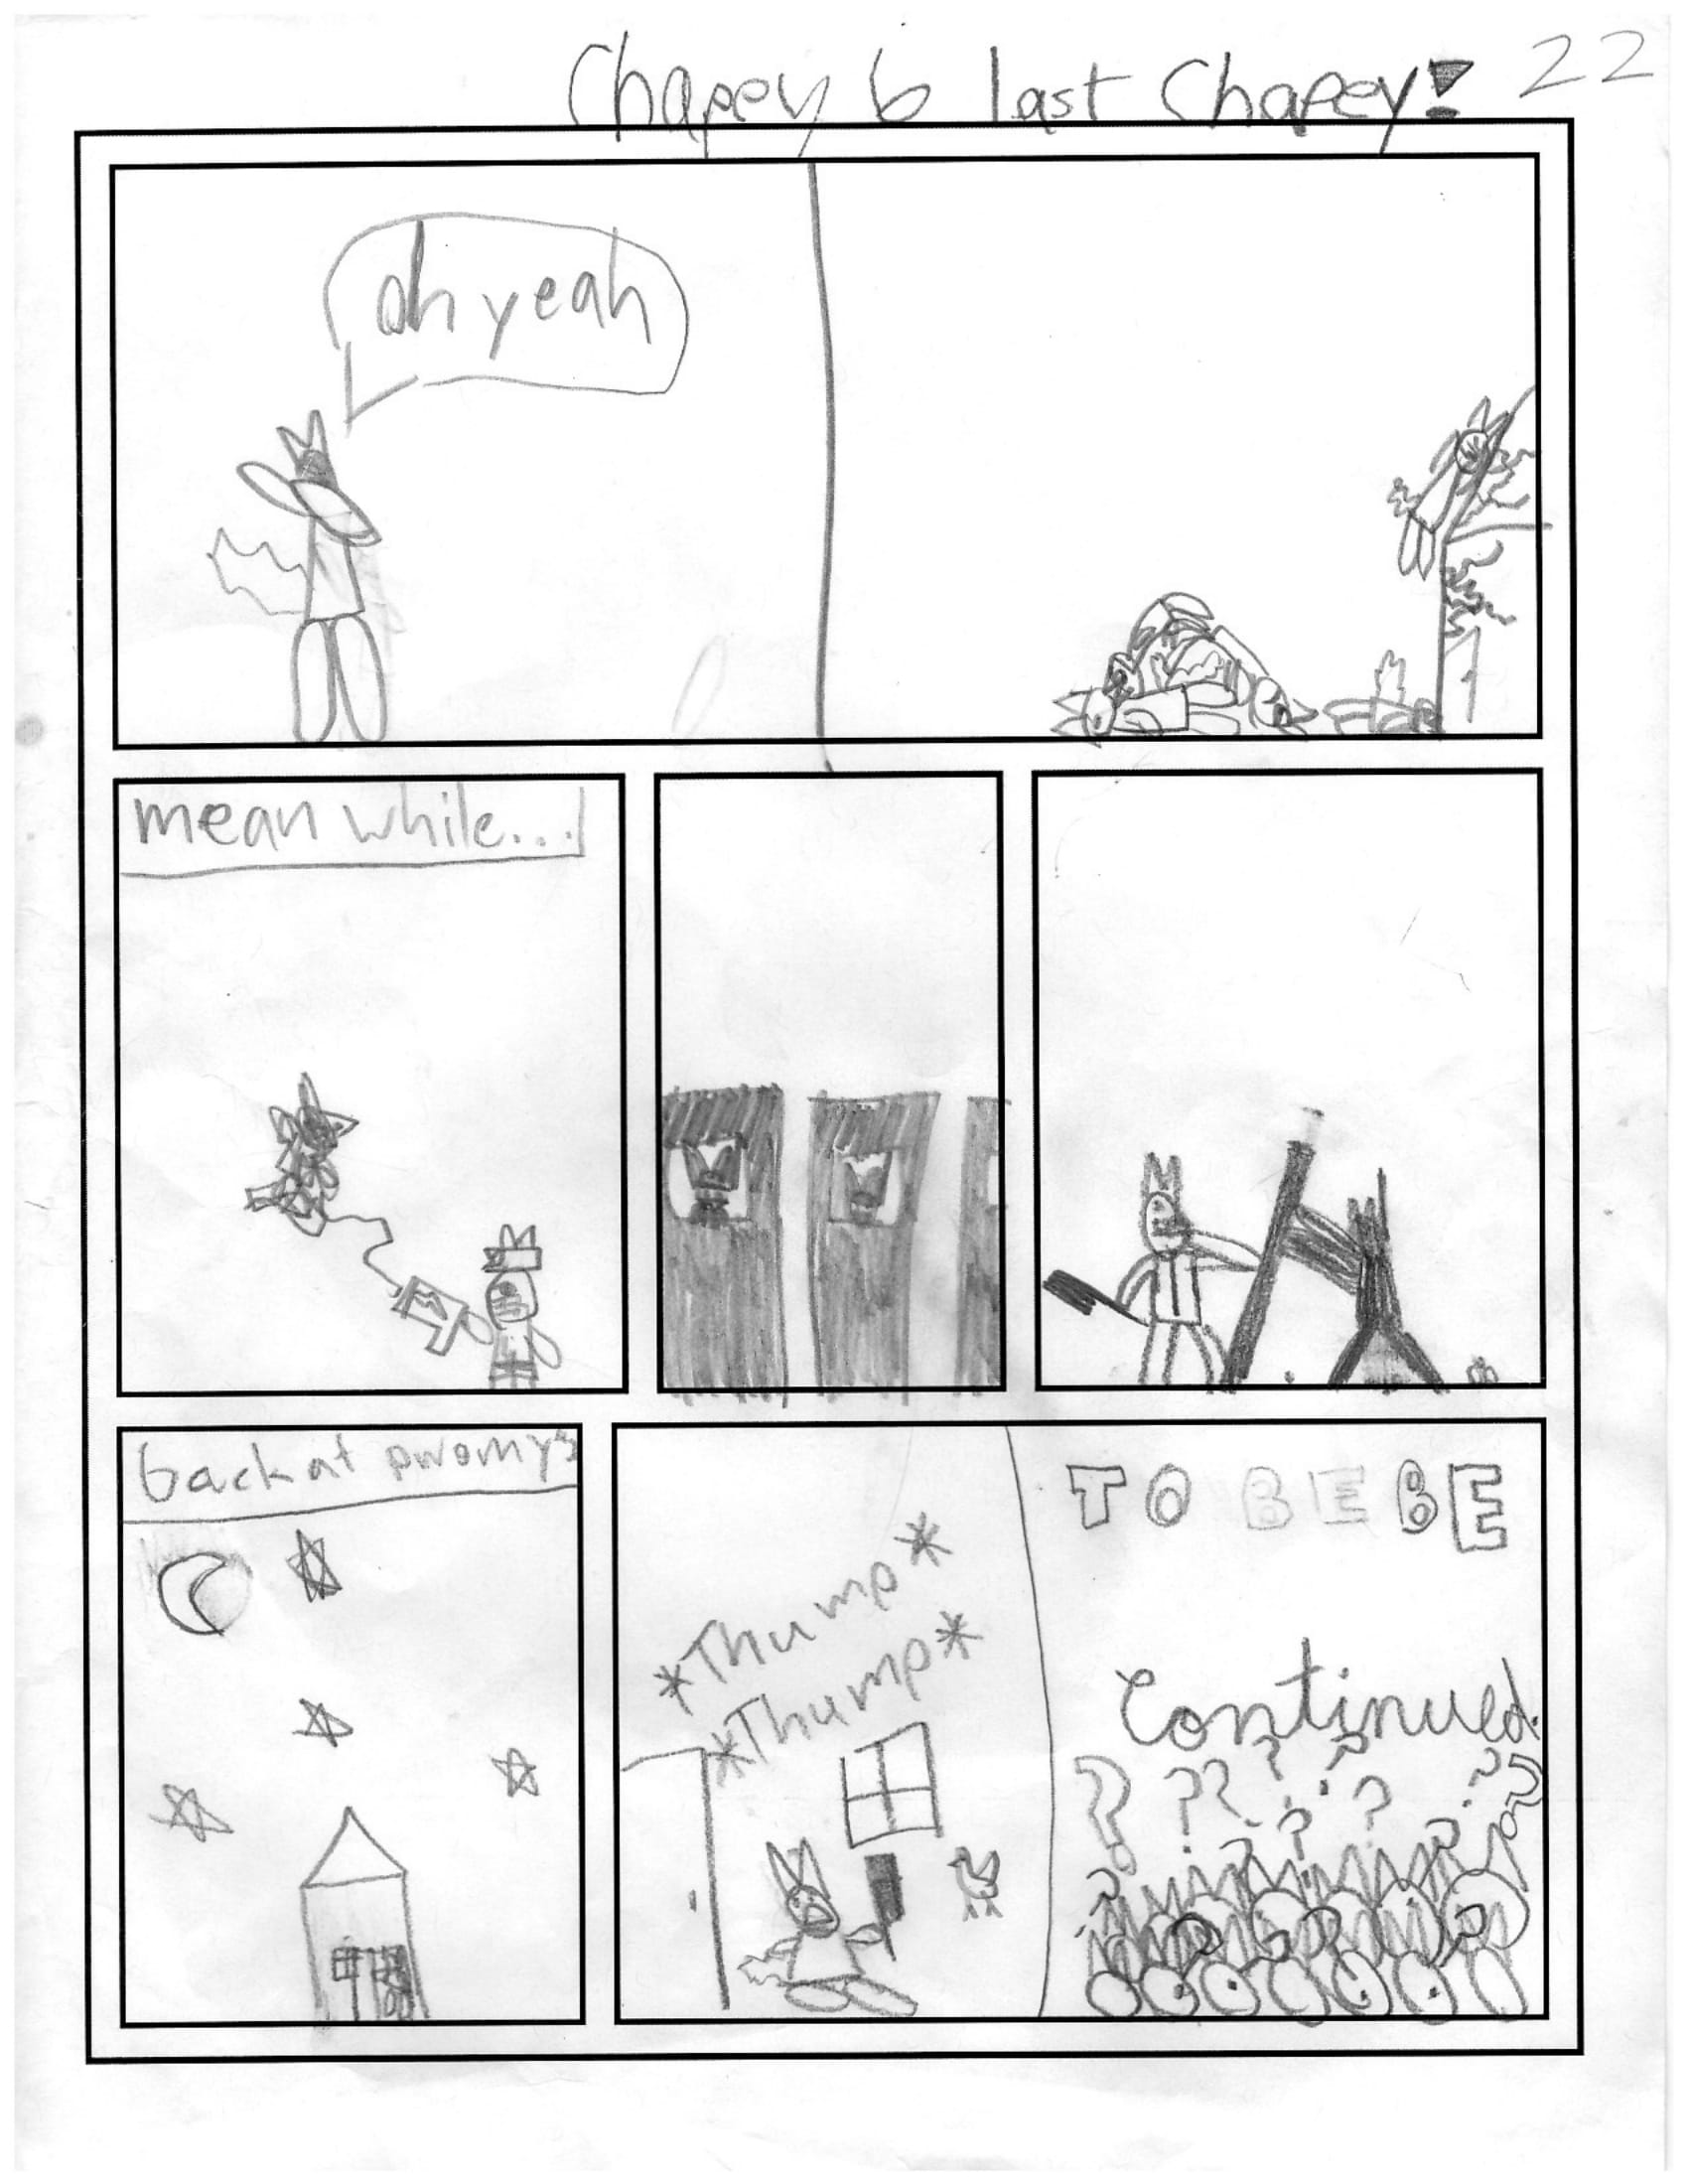 Chapey 6 last Chapey! 22
oh yeah
mean while...
back at pwomy's
*Thump*
*Thump*
TO BE BE
Continued.
? ? ? ? ? ? ? ?